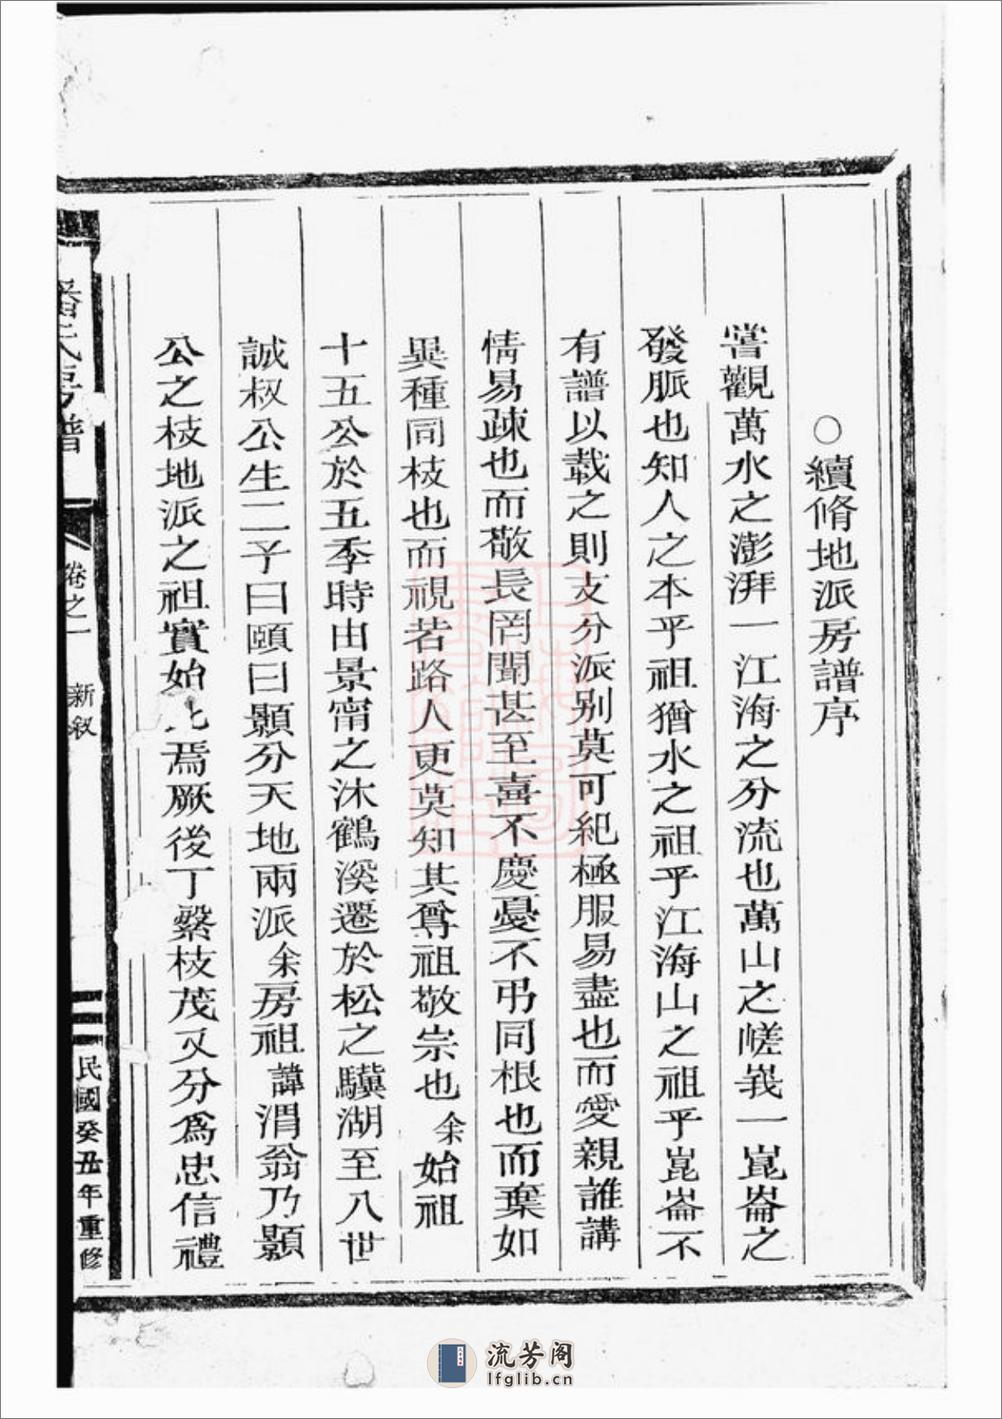 ○續脩地派房譜序
嘗觀萬水之澎湃一江海之分流也萬山之嵯峩一崑崙之
發脈也知人之本乎祖猶水之祖乎江海山之祖乎崑崙不
有譜以載之則支分派别莫可紀極服易盡也而愛親誰講
情易疎也而敬長罔聞甚至喜不慶憂不弔同根也而棄如
異種同枝也而視若路人更莫知其尊祖敬宗也余始祖
十五公於五季時由景甯之沐鶴溪遷於松之驥湖至八世
誠叔公生二子曰頤曰顥分天地兩派余房祖諱渭翁乃顥
公之枝地派之祖實始此焉厥後丁繁枝茂又分爲忠信禮
潘氏房譜
卷之一
新叙
民國癸丑年重修
流芳阁
lfglib.cn